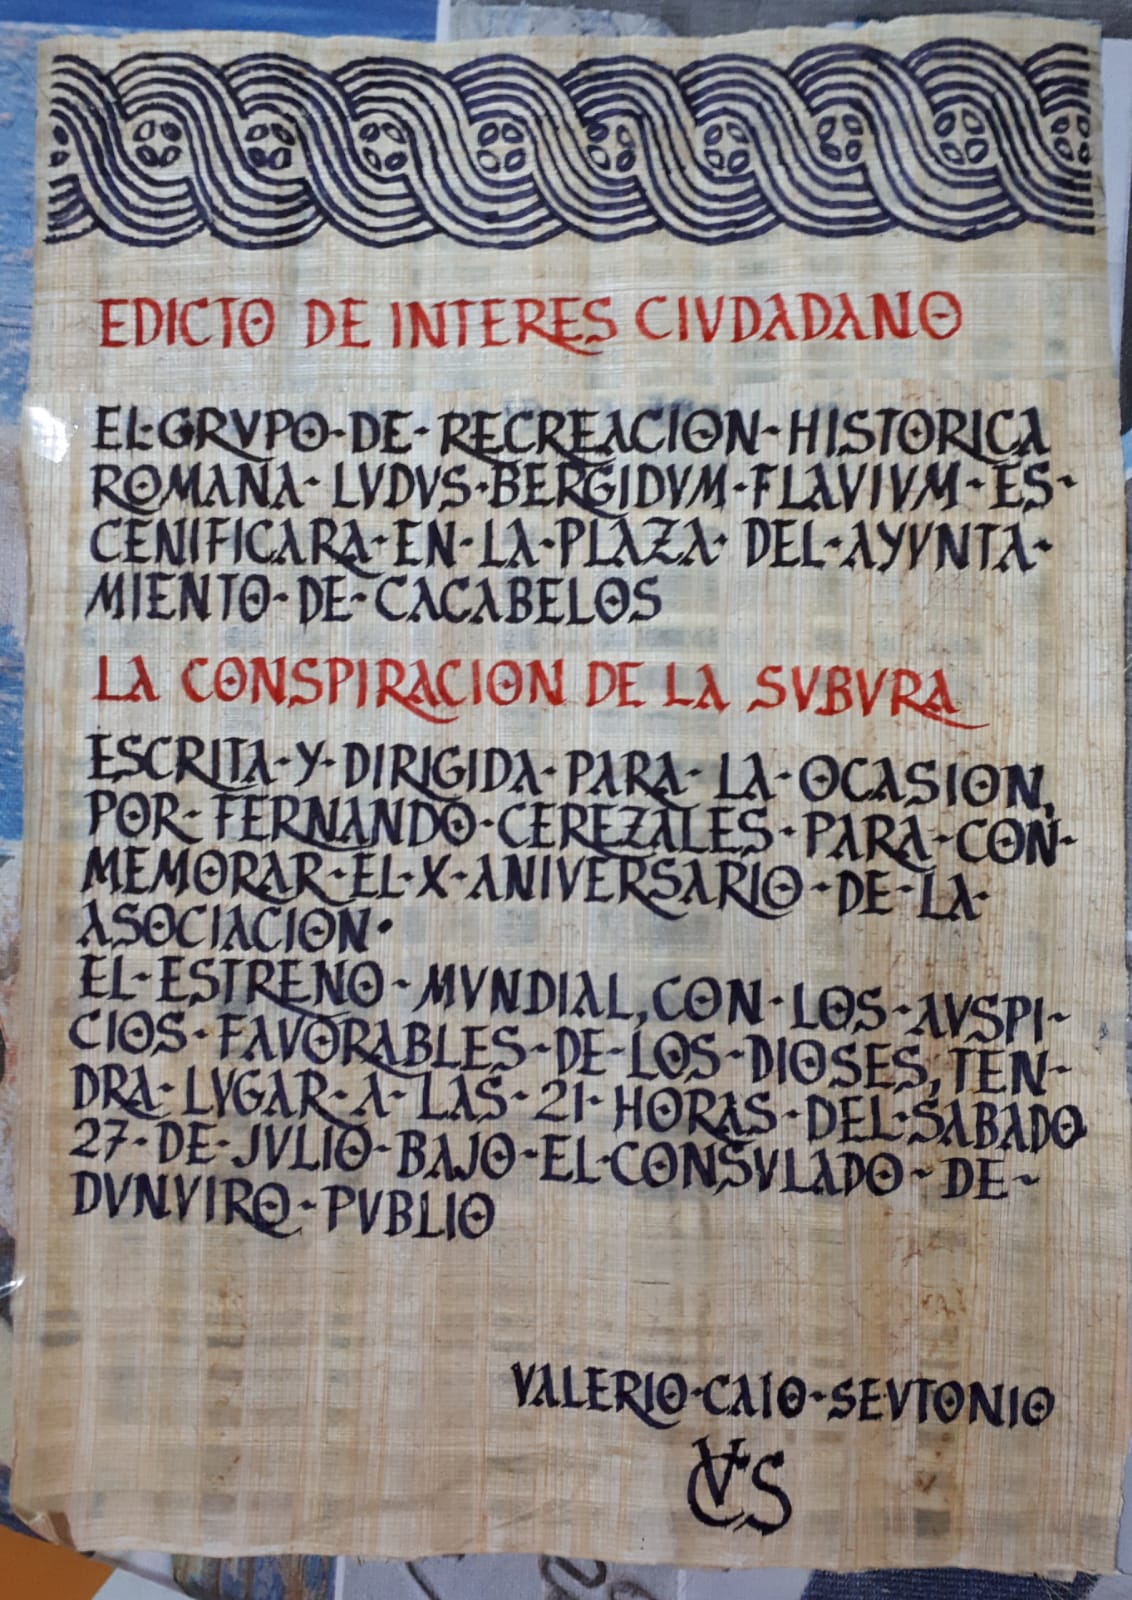 EDICTO DE INTERES CIVDADANO
EL·GRVPO·DE·RECREACION·HISTORICA
ROMANA·LVDVS·BERGIDVM·FLAVIVM·ES·
CENIFICARA·EN·LA·PLAZA·DEL·AYVNTA·
MIENTO·DE·CACABELOS
LA CONSPIRACION DE LA SVBVRA
ESCRITA·Y·DIRIGIDA·PARA·LA·OCASION,
POR·FERNANDO·CEREZALES·PARA·CON·
MEMORAR·EL·X·ANIVERSARIO·DE·LA·
ASOCIACION·
EL·ESTRENO·MVNDIAL,CON·LOS·AVSPI-
CIOS·FAVORABLES·DE·LOS·DIOSES,TEN-
DRA·LVGAR·A·LAS·21·HORAS·DEL·SABADO
27·DE·JVLIO·BAJO·EL·CONSVLADO·DE·
DVNVIRO·PVBLIO
VALERIO·CAIO·SEVTONIO
VCS